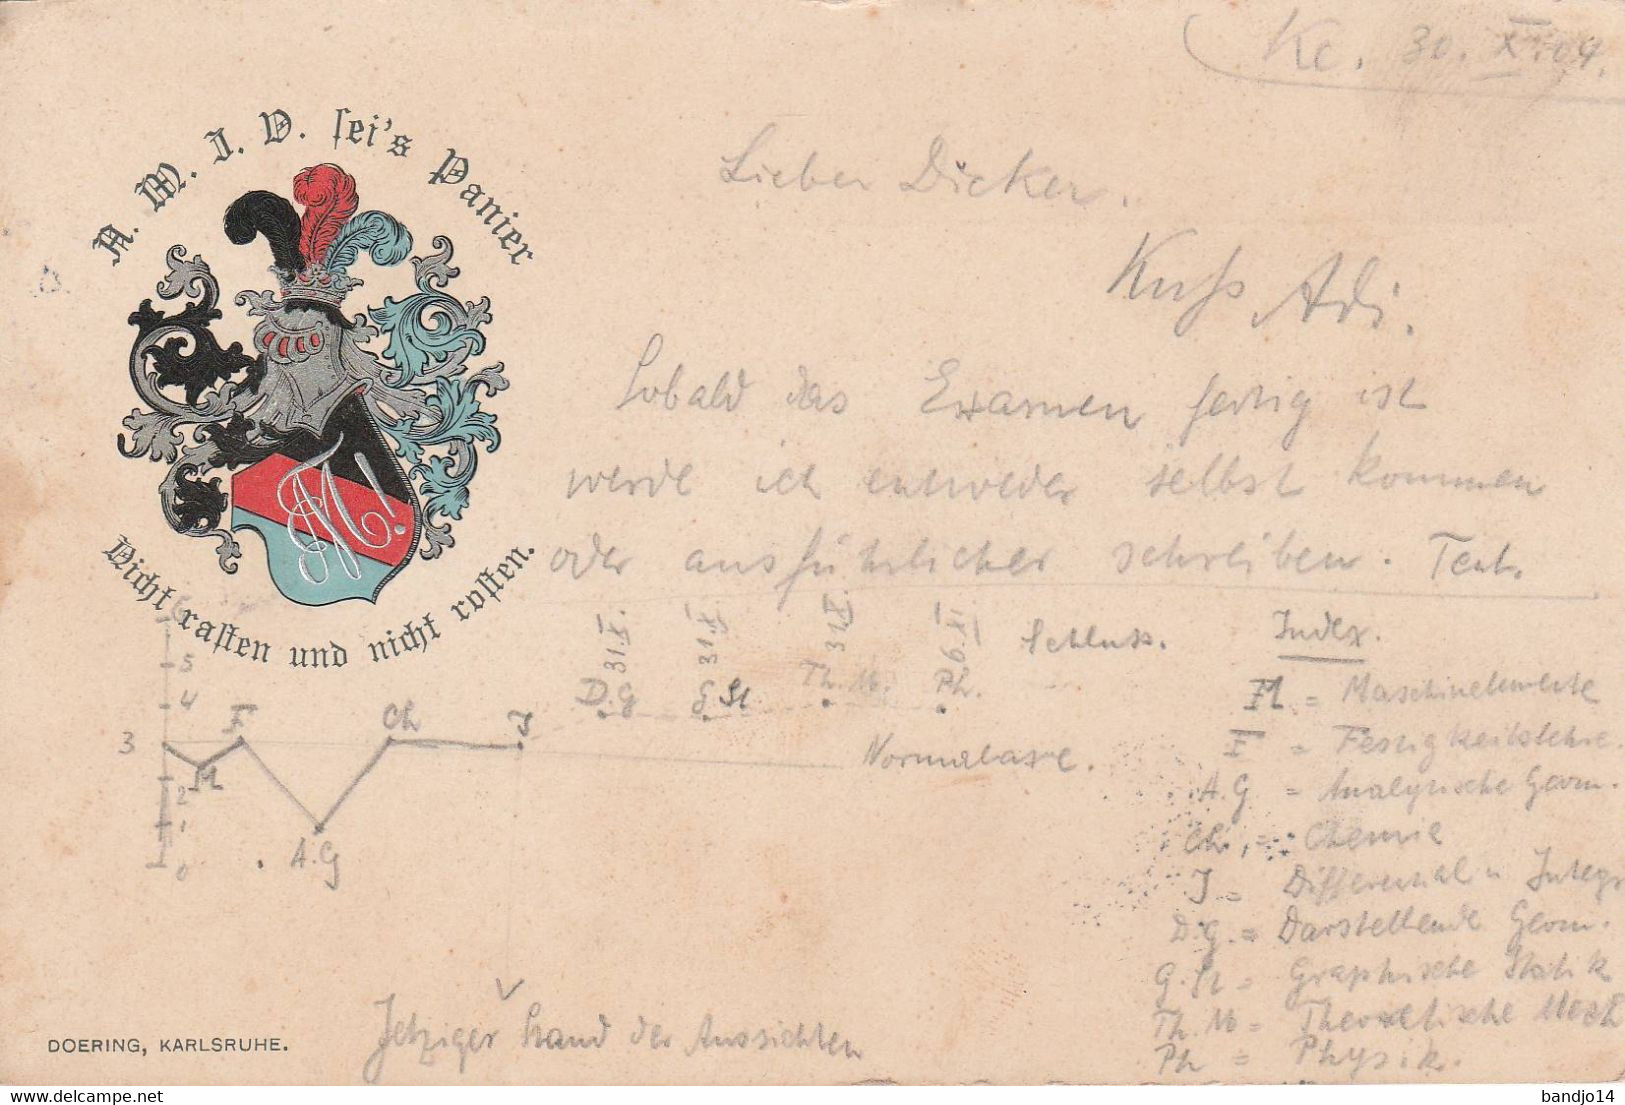 Kc. 30. X. 09.
A. M. I. V. sei's Panier
Lieber Dicker.
Kuss Adi.
Sobald das Examen fertig ist
werde ich entweder selbst kommen
oder ausführlicher schreiben. Text.
M!
Nicht rasten und nicht rosten.
D.g 31.X.
g St 31.X
Th. M. 31.X.
Ph. 6.XI
Schluss.
Index.
6
5
4
3
2
1
0
M
F
A.G
Ch
I
Normalaxe.
M = Maschinenelemente
F = Festigkeitslehre.
A.G = Analytische Geom.
Ch. = Chemie
I = Differential u Integr
D.g. = Darstellende Geom.
G.St = Graphische Statik
Th. M = Theoretische Mech
Ph = Physik.
Jetziger Stand der Aussichten
DOERING, KARLSRUHE.
delcampe.net
bandjo14